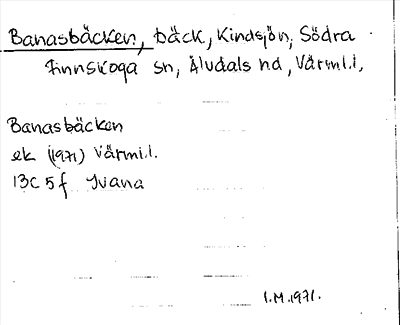 Banasbäcken, bäck, Kindsjön, Södra
Finnskoga sn, Älvdals hd, Värml.l,
Banasbäcken
ek (1971) Värml.l.
13C 5f Ivana
I.M.1971.